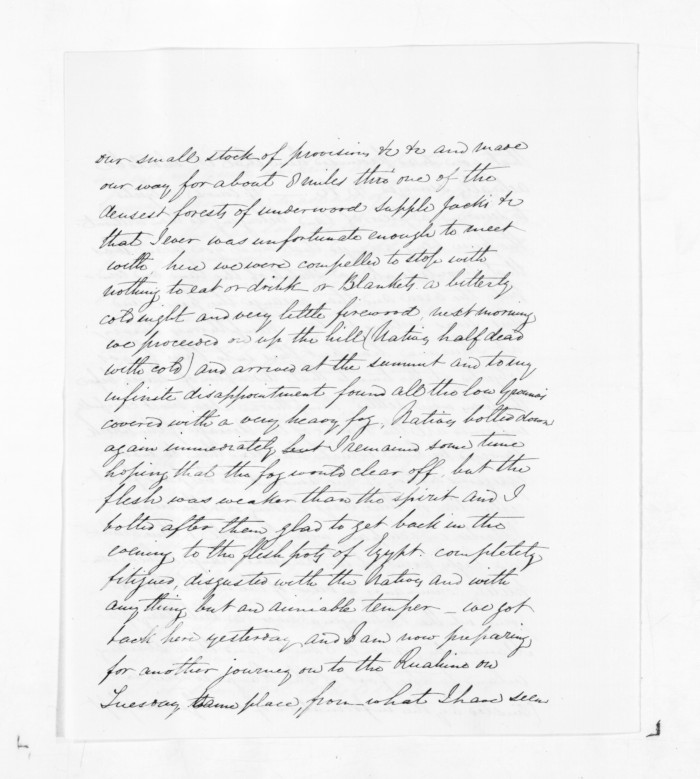 our small stock of provisions &c &c and made
our way for about 8 miles thro' one of the
densest forests of underwood supple Jacks &c
that I ever was unfortunate enough to meet
with, here we were compelled to stop with
nothing to eat or drink or Blankets a bitterly
cold night and very little firewood, next morning
we proceeded on up the hill (Natives half dead
with cold) and arrived at the summit and to my
infinite disappointment found all the low Grounds
covered with a very heavy fog, Natives bolted down
again immediately but I remained some time
hoping that the fog would clear off, but the
flesh was weaker than the spirit and I
bolted after them glad to get back in the
evening to the fleshpots of Egypt. completely
fitigued, disgusted with the Natives and with
anything but an aimiable temper - we got
back here yesterday and I am now preparing
for another journey on to the Ruahine on
Tuesday same place, from what I have seen